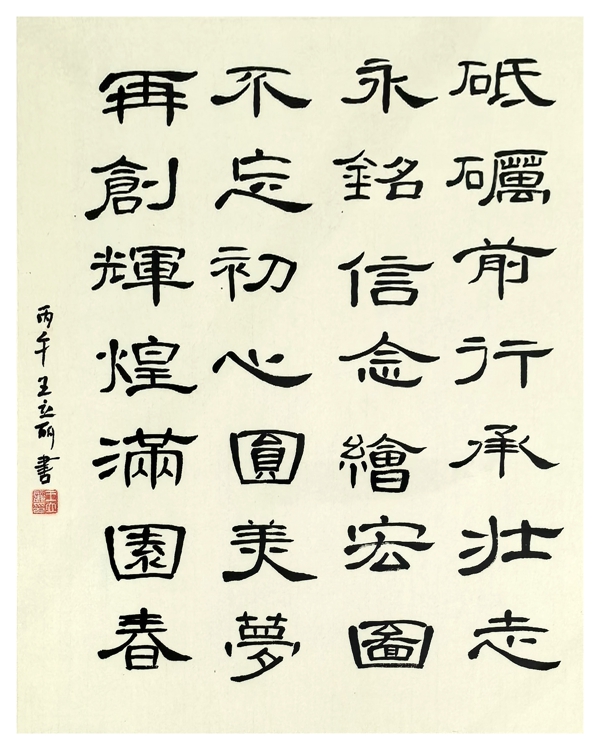 砥礪前行承壯志
永銘信念繪宏圖
不忘初心圓美夢
再創輝煌滿園春
丙午王立丽書